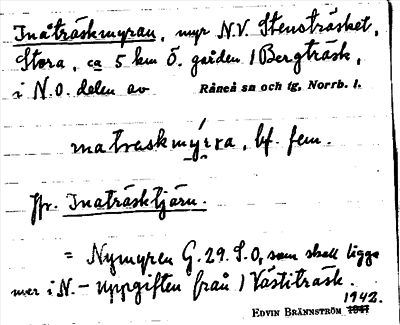 Inåträskmyran, myr N.V. Stensträsket,
Stora, ca 5 km Ö. gården 1 Bergträsk,
i N.O. delen av Råneå sn och tg, Norrb. l.
ɩnatraskmýrːa, bf. fem.
Jfr. Inaträsktjärn.
= Nymyren G. 29. S.O, som skall ligga
mer i N. – Uppgiften från 1 Västiträsk.
1942.
EDVIN BRÄNNSTRÖM 1941